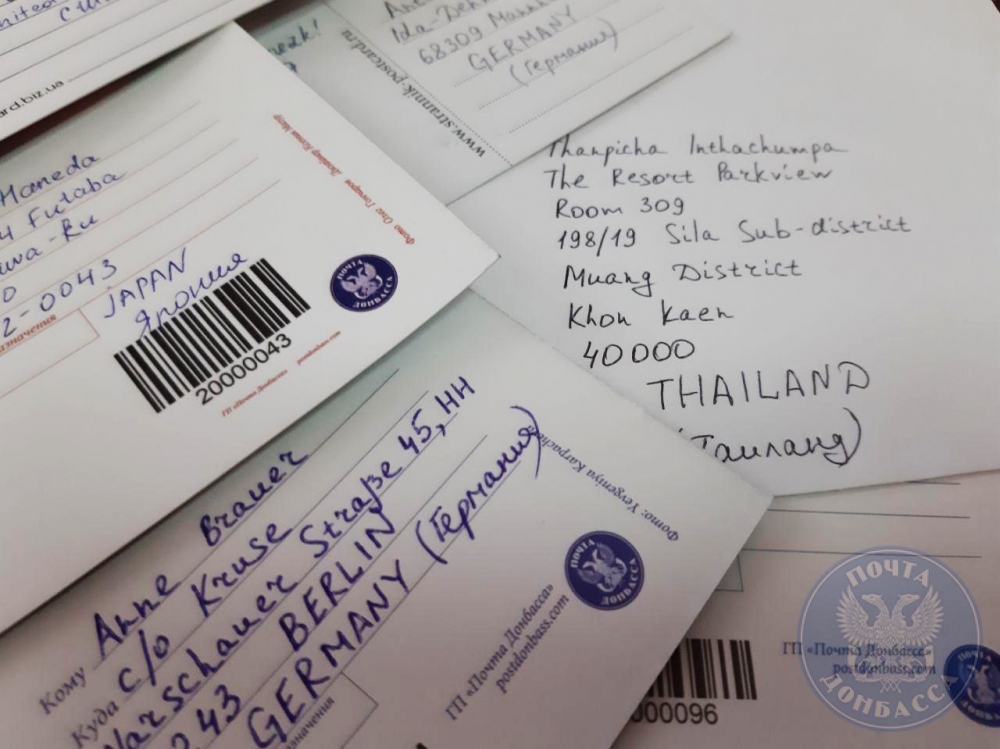 ard.biz.ua
www.strannik-postcard.ru
Ida-
68309
GERMANY
(Германия)
Haneda
4 Futaba
2-0043
JAPAN
Япония
20000043
ГП «Почта Донбасса» postdonbass.com
ПОЧТА
ДОНБАССА
Thanpicha Inthachumpa
The Resort Parkview
Room 309
198/19 Sila Sub-district
Muang District
Khon Kaen
40000
THAILAND
(Таиланд)
Кому Anne Brauer
Куда c/o Kruse
Warschauer Straße 45, HH
243 BERLIN
GERMANY (Германия)
Фото: Yevgeniya Karpache
ГП «Почта Донбасса»
postdonbass.com
ПОЧТА
ДОНБАССА
000096
ГП «Почта Донбасса»
postdonbass.com
ПОЧТА
ДОНБАССА